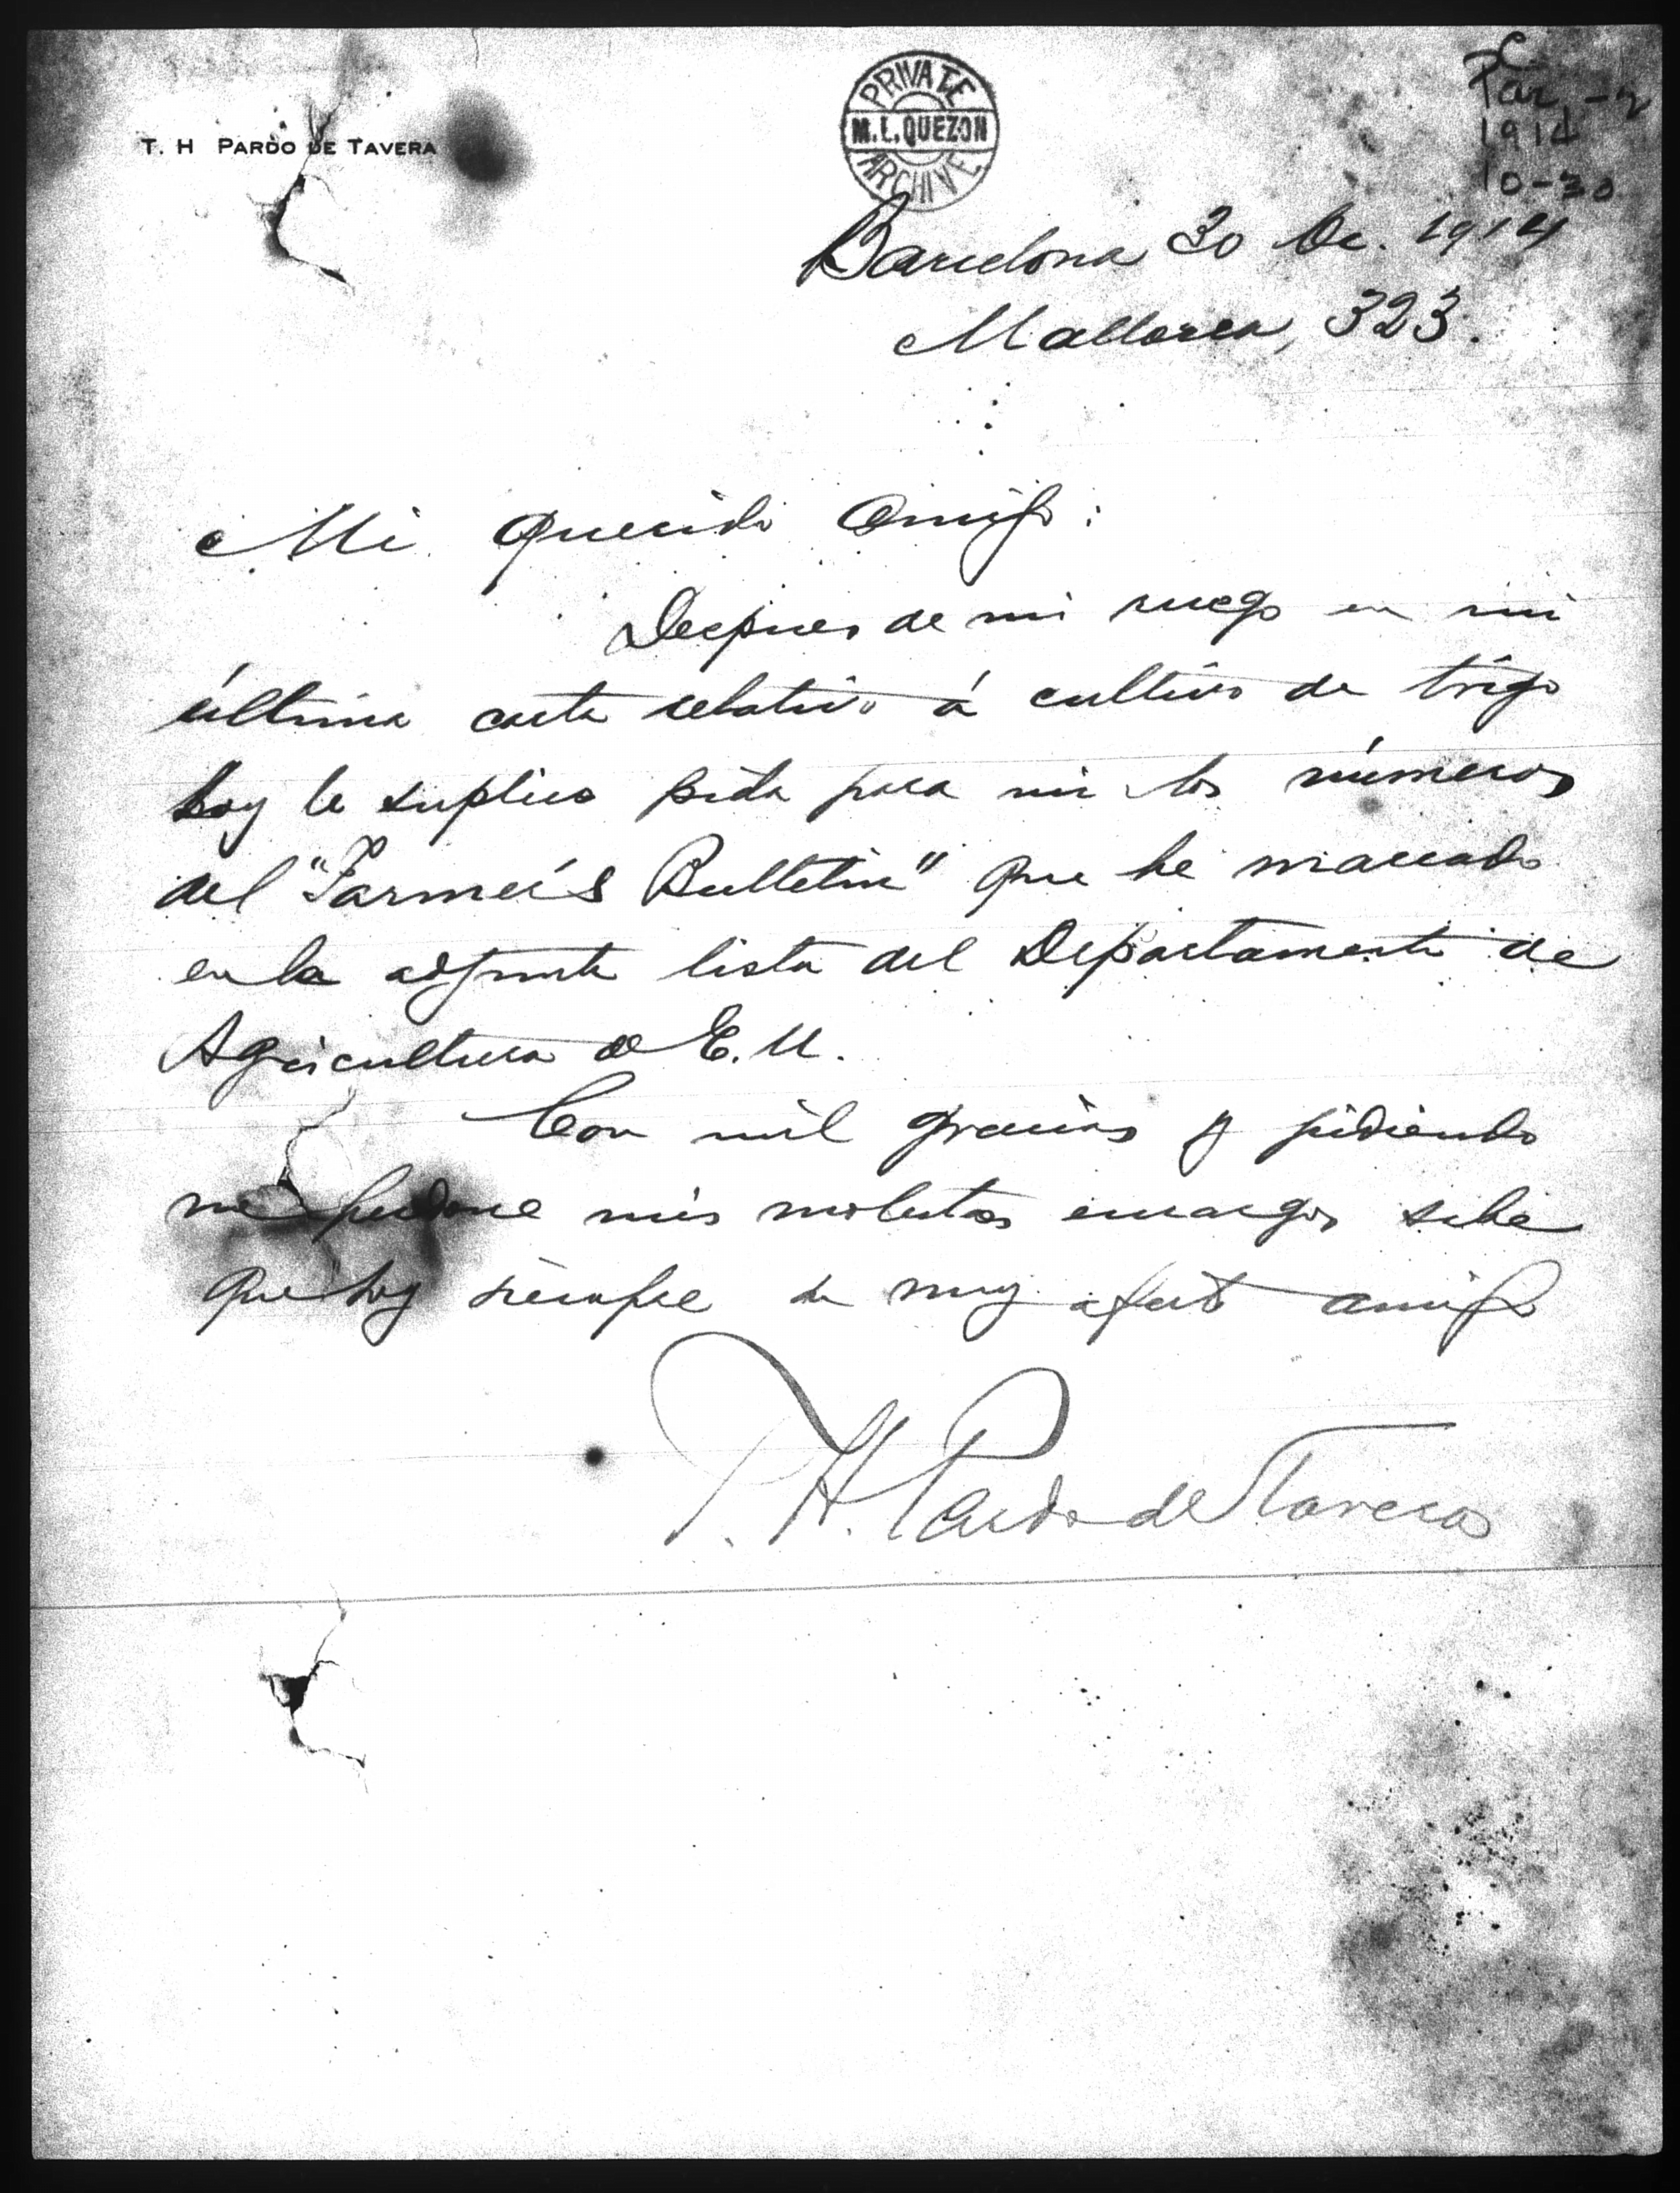 T. H PARDO DE TAVERA
PRIVATE
M.L.QUEZON
ARCHIVE
1914
10-30
Barcelona 30 Oc. 1914
Mallorca, 323.
Mi querido amigo:
Despues de mi ruego en mi
última carta relativo á cultivo de trigo
hoy le suplico pida para mi los números
del "Farmer's Bulletin" que he marcado
en la adjunta lista del Departamento de
Agricultura de E.U.
Con mil gracias y pidiendo
me perdone mis molestos encargos sabe
que soy siempre su muy afecto amigo
T. H. Pardo de Tavera